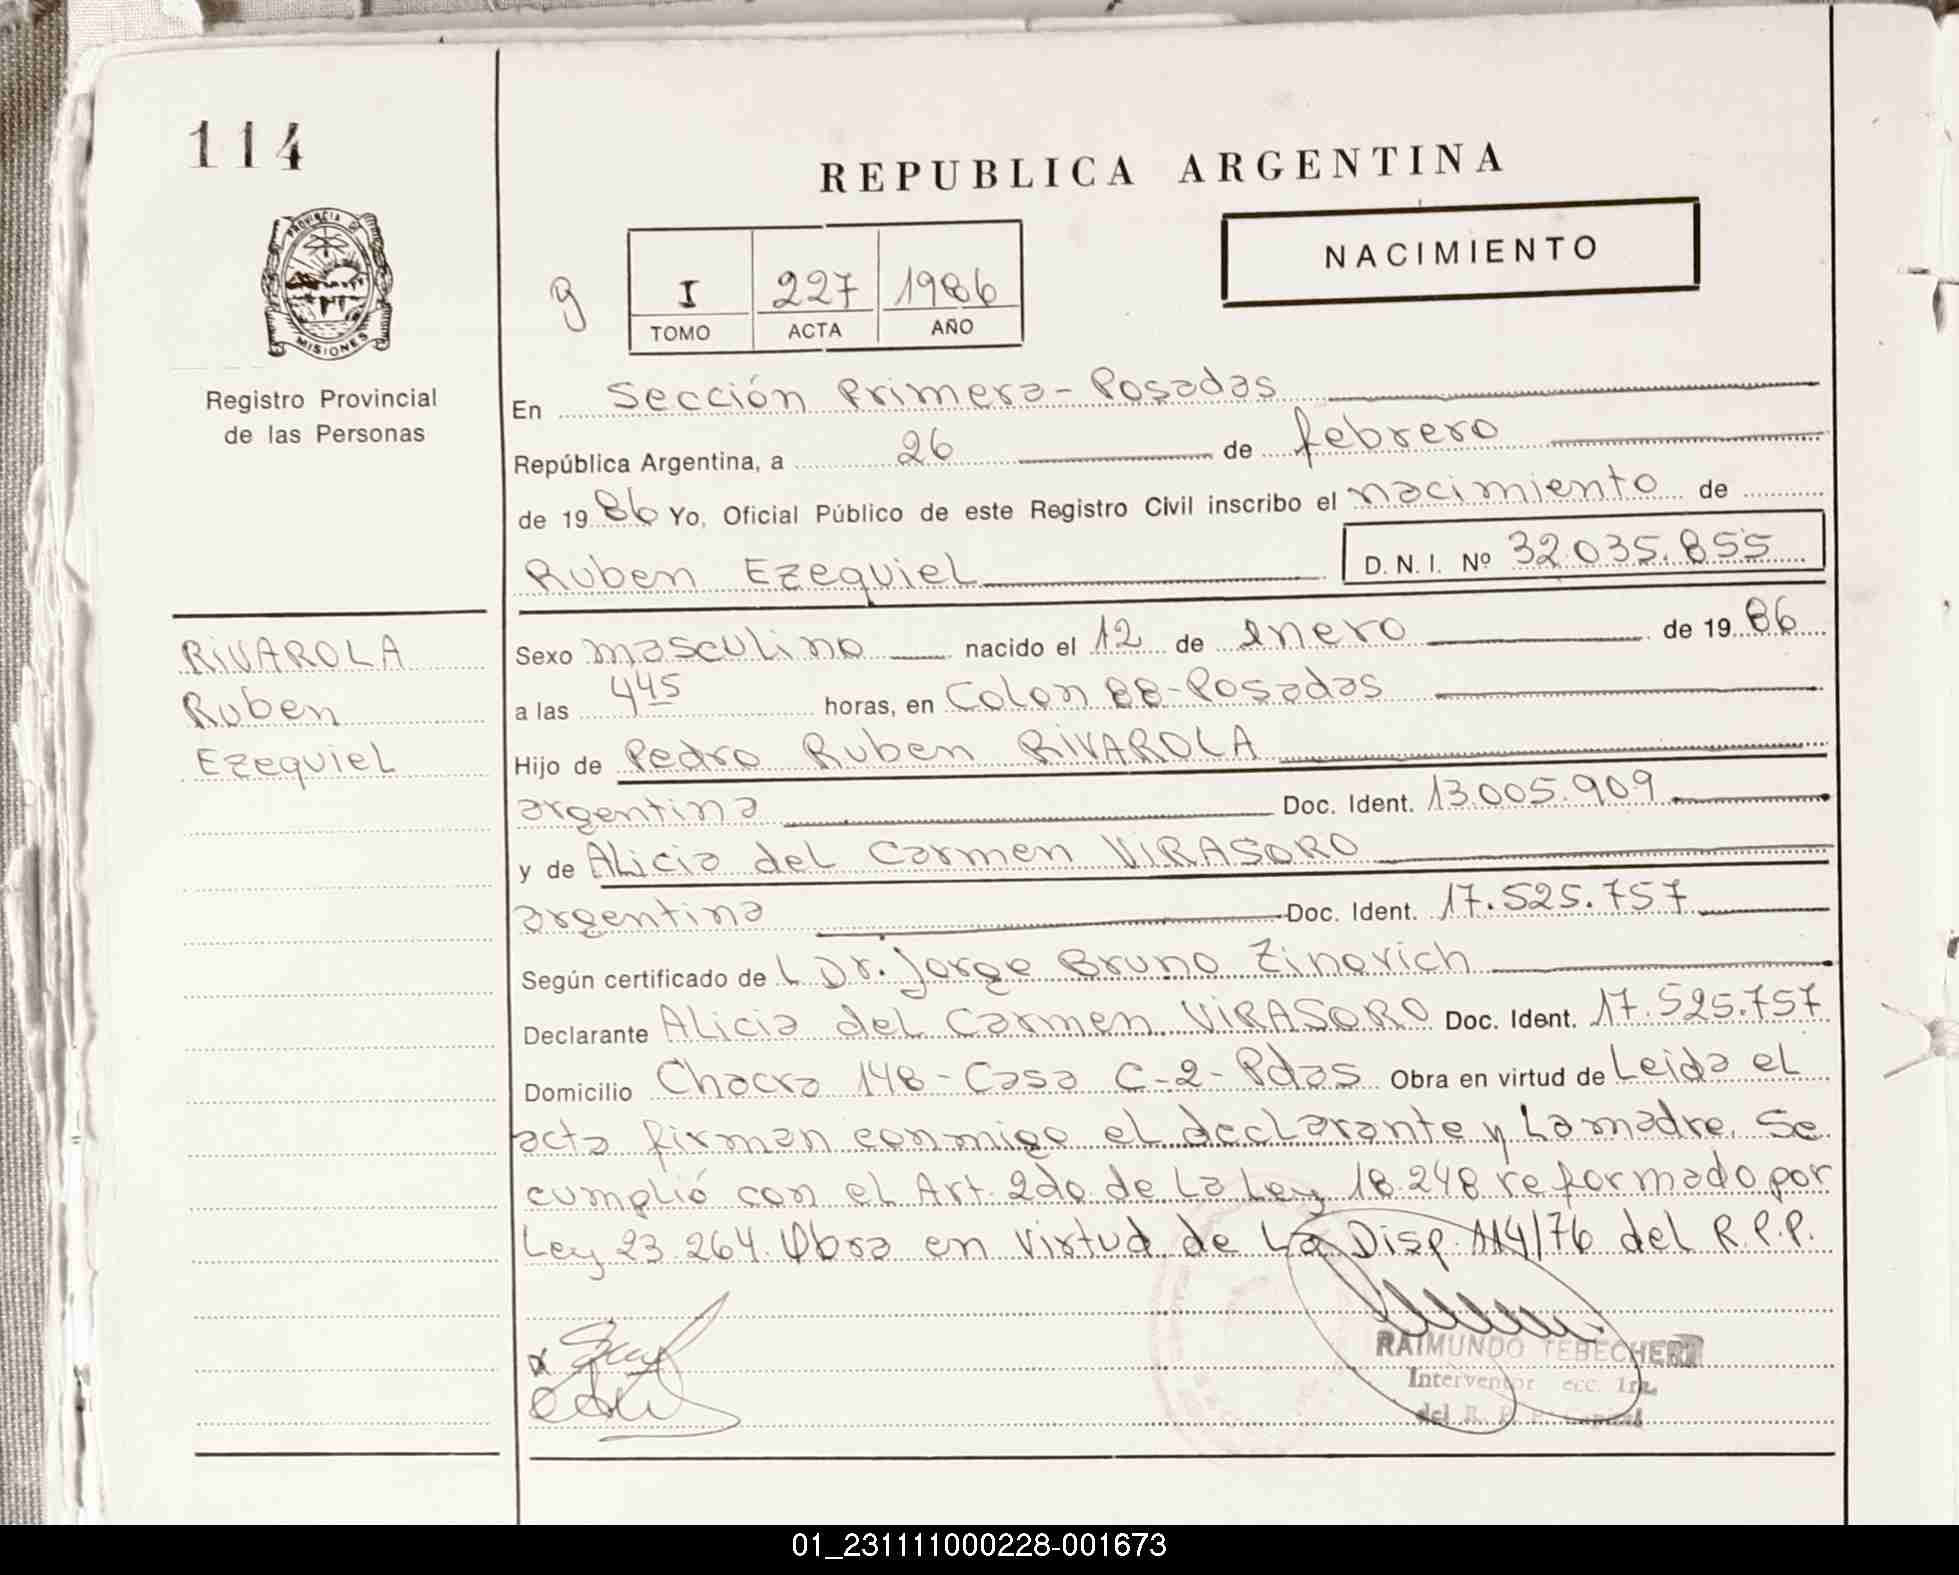 114
REPUBLICA ARGENTINA
PROVINCIA DE
MISIONES
NACIMIENTO
g
I 227 1986
TOMO ACTA AÑO
Registro Provincial
de las Personas
En Sección Primera - Posadas
República Argentina, a 26 de febrero
de 1986 Yo, Oficial Público de este Registro Civil inscribo el nacimiento de
Ruben Ezequiel D. N. I. Nº 32.035.855
RIVAROLA
Ruben
Ezequiel
Sexo masculino nacido el 12 de enero de 1986
a las 4 45 horas, en Colon 88 - Posadas
Hijo de Pedro Ruben RIVAROLA
argentina Doc. Ident. 13.005.909
y de Alicia del Carmen VIRASORO
argentina Doc. Ident. 17.525.757
Según certificado del Dr. Jorge Bruno Zinovich
Declarante Alicia del Carmen VIRASORO Doc. Ident. 17.525.757
Domicilio Chacra 148 - Casa C-2 - Pdas Obra en virtud de Leida el
acta firman conmigo el declarante y la madre. Se
cumplió con el Art. 2do de la Ley 18.248 reformado por
Ley 23.264. Obra en virtud de la Disp. 114/76 del R.P.P.
RAIMUNDO TEBECHERI
Interventor ecc. 1ra.
del R. P. P. Capital
01_231111000228-001673